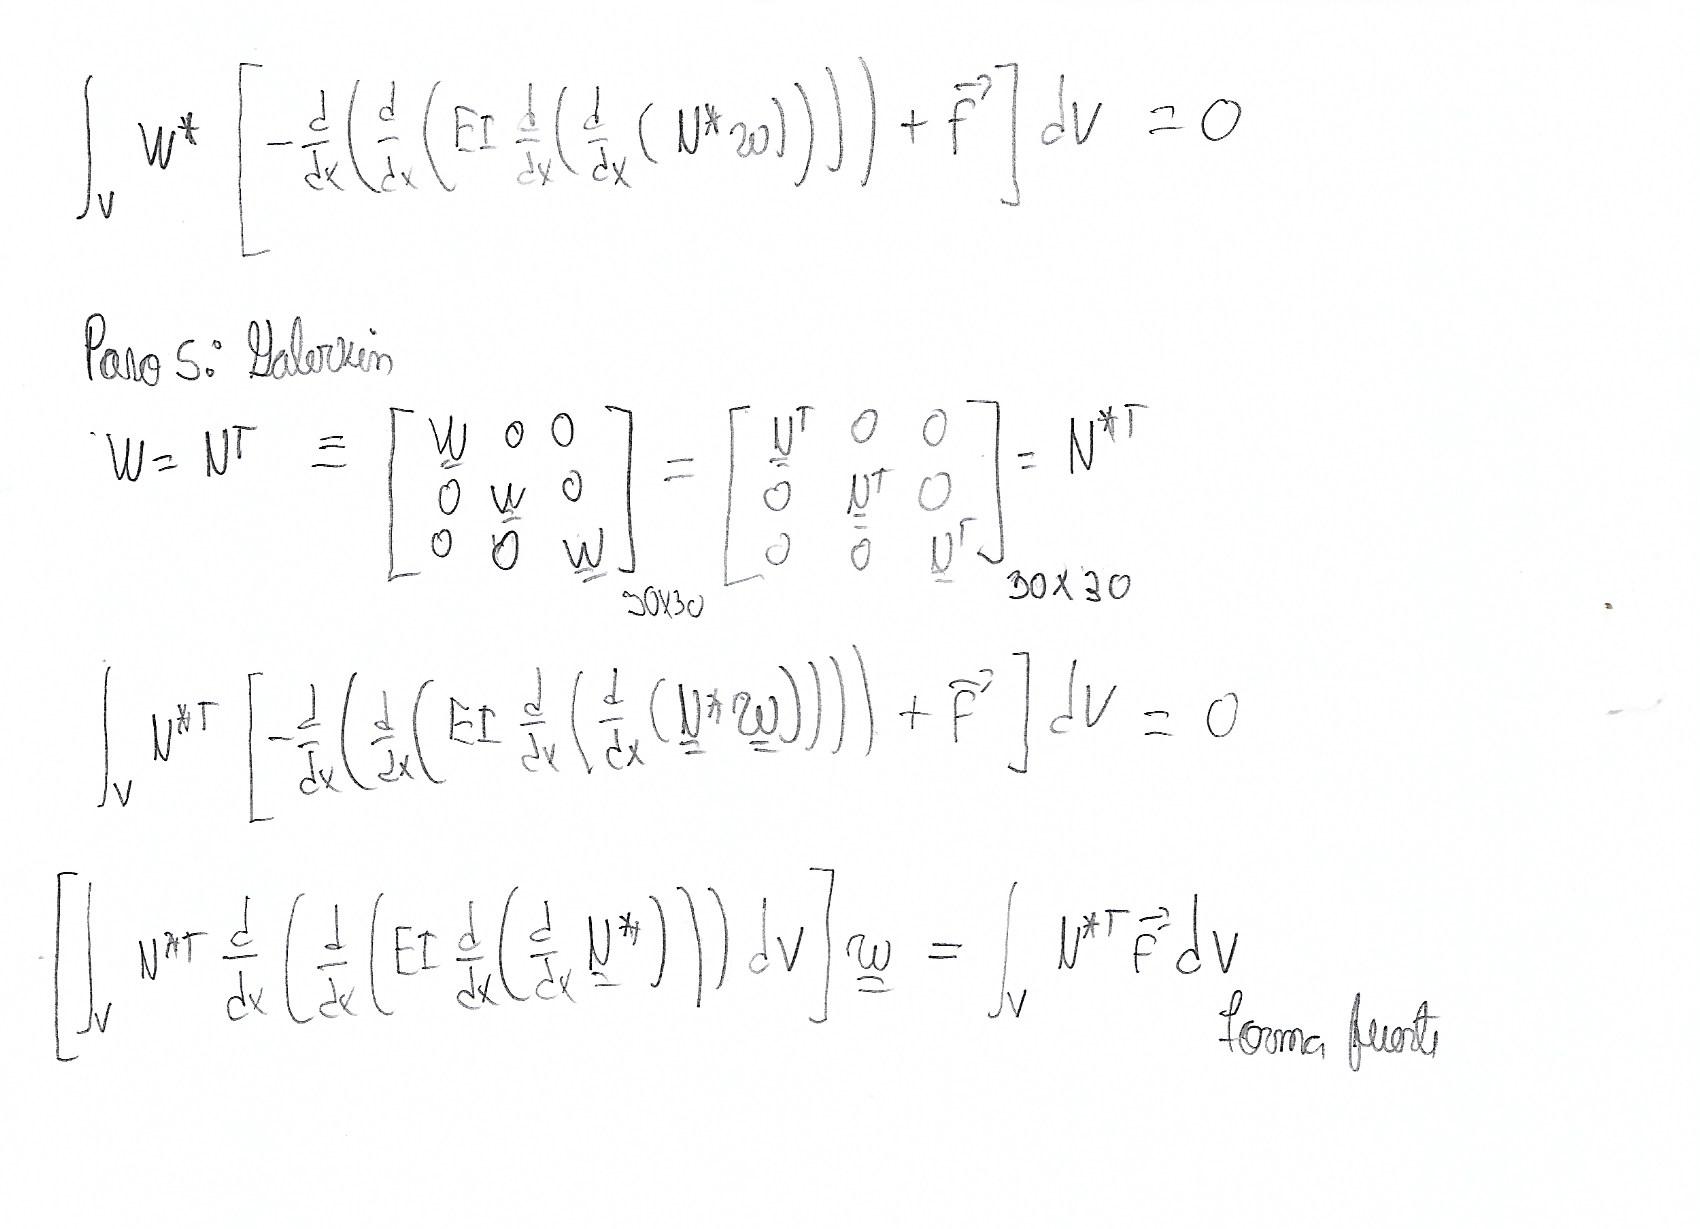 ∫_V W* [ -d/dx ( d/dx ( EI d/dx ( d/dx ( N* w ) ) ) ) + f⃗ ] dV = 0
Paso 5: Galerkin
W = N^T ≡ [ W 0 0 ; 0 W 0 ; 0 0 W ]_30x30 = [ N^T 0 0 ; 0 N^T 0 ; 0 0 N^T ]_30x30 = N*^T
∫_V N*^T [ -d/dx ( d/dx ( EI d/dx ( d/dx ( N* w ) ) ) ) + f⃗ ] dV = 0
[ ∫_V N*^T d/dx ( d/dx ( EI d/dx ( d/dx N* ) ) ) dV ] w = ∫_V N*^T f⃗ dV
forma fuerte